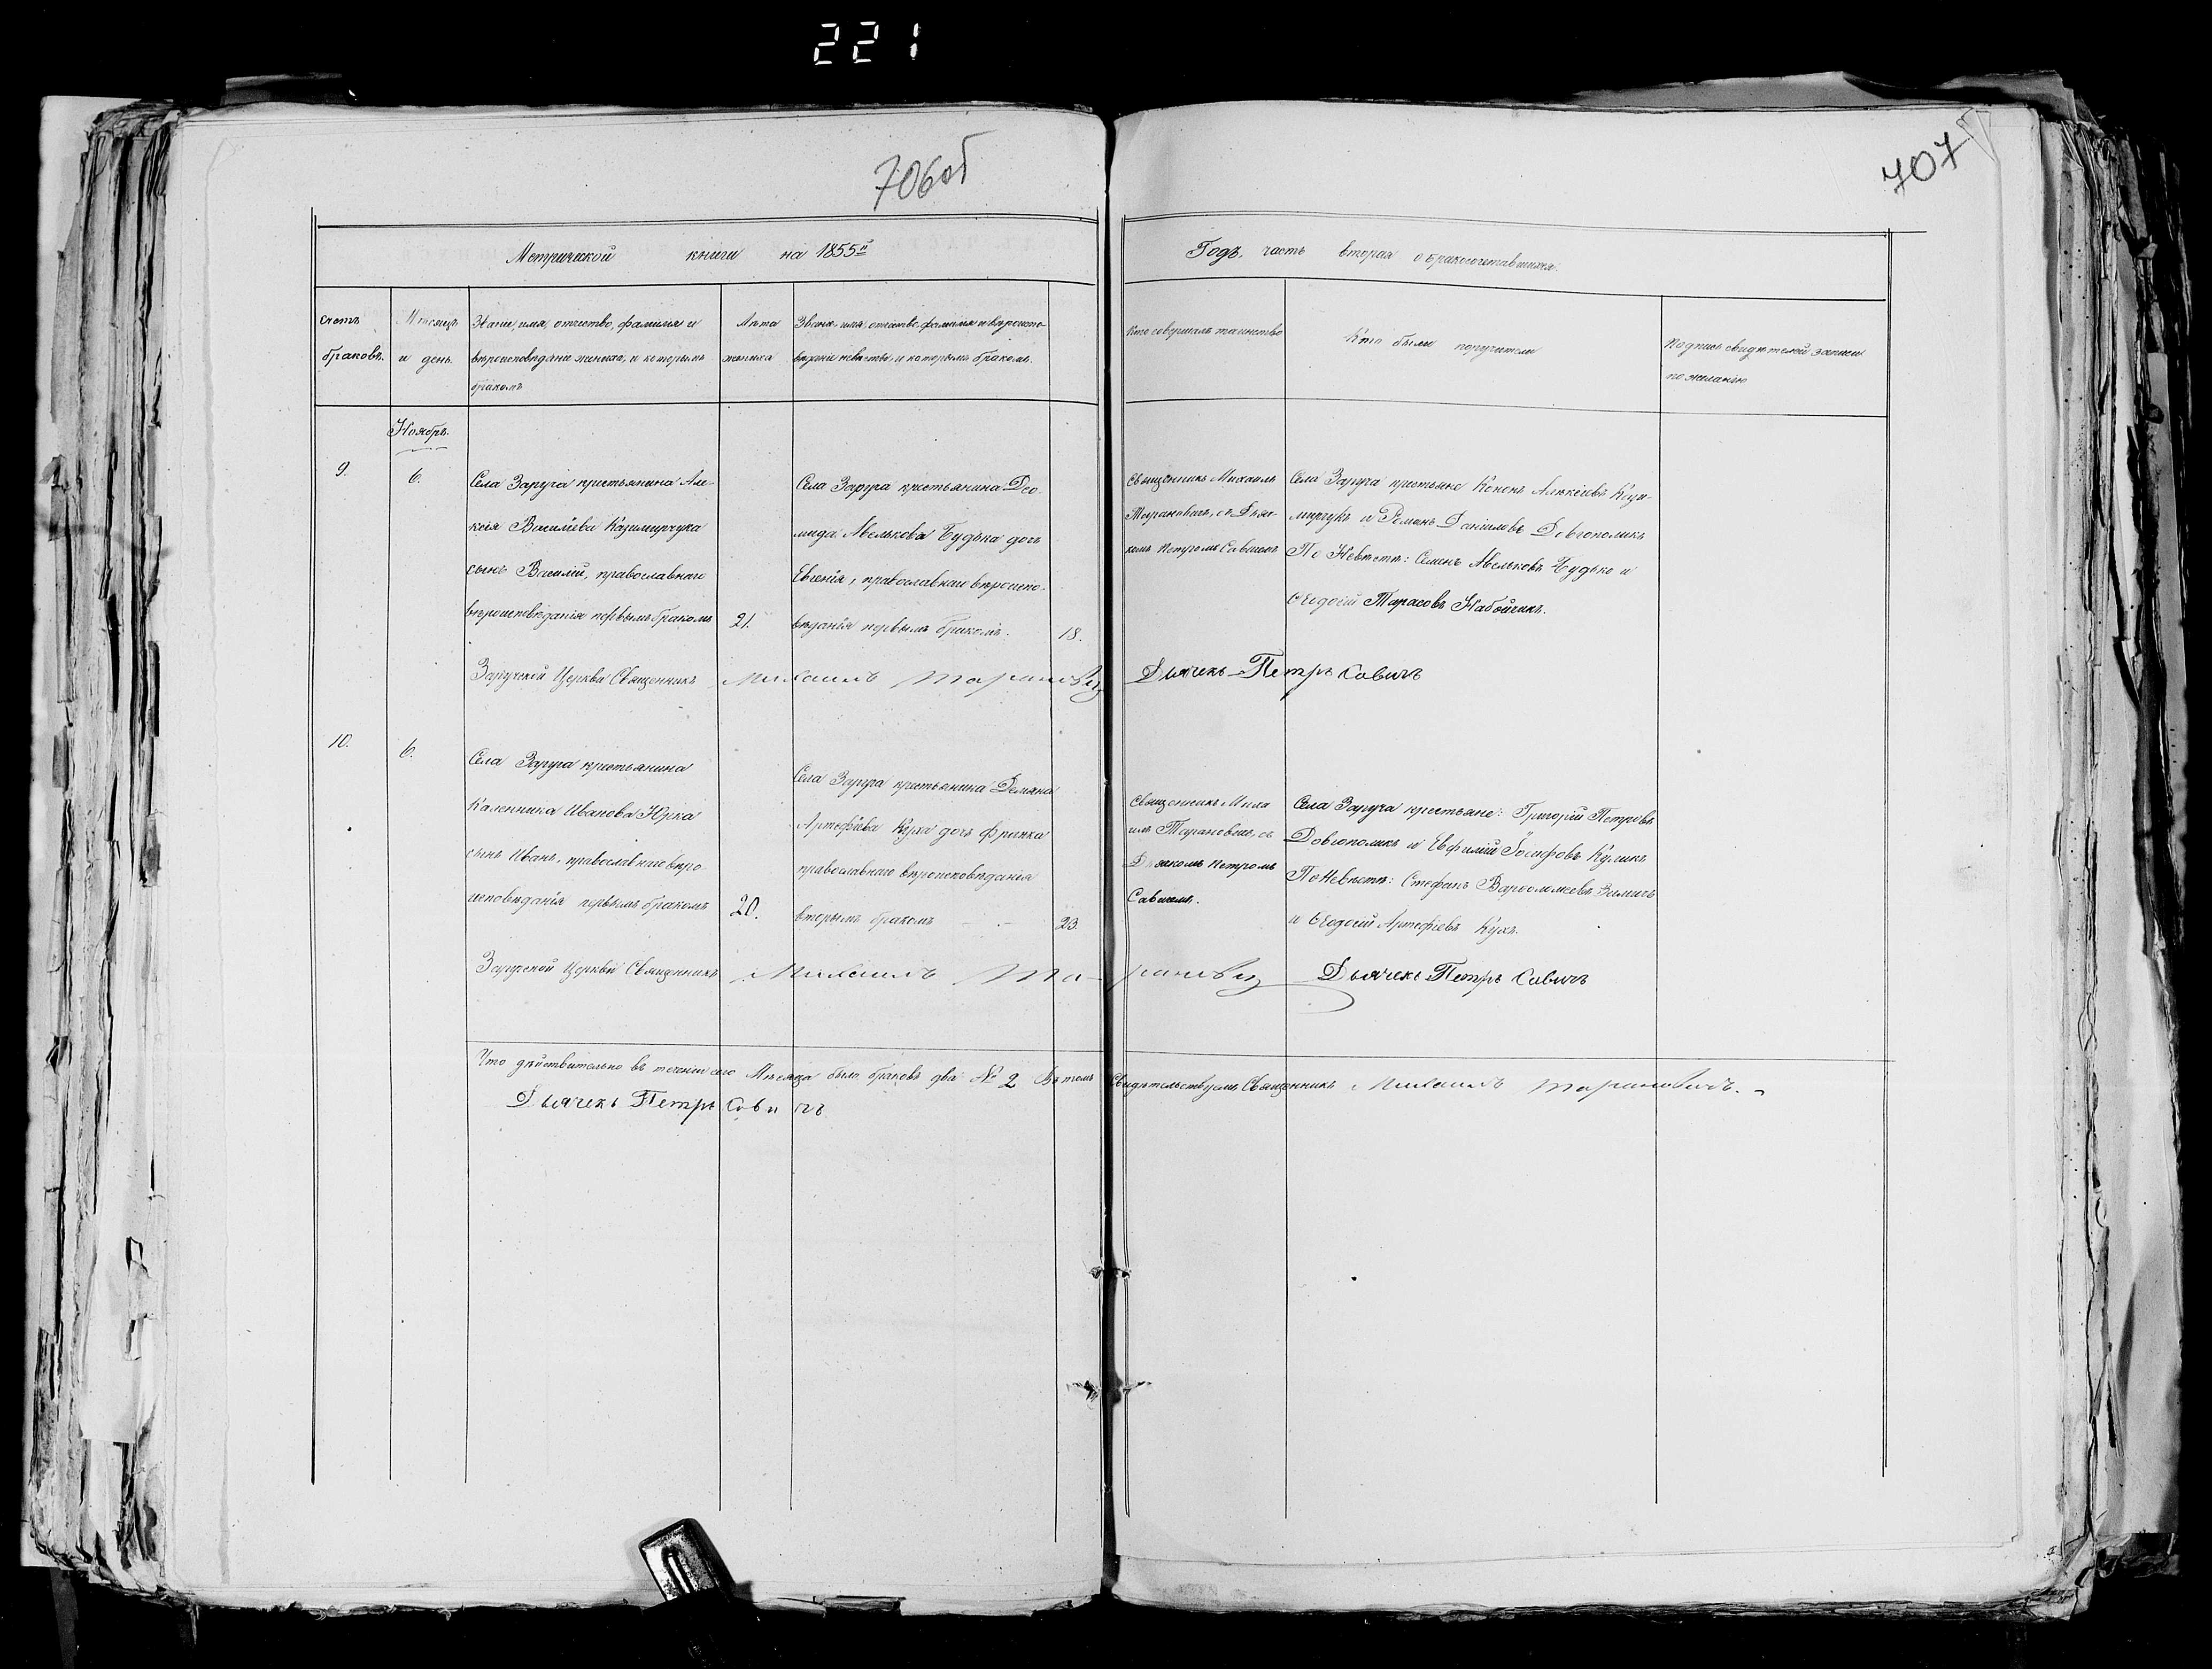 221
706об
707
Метрической книги на 1855й
Годъ, часть вторая о бракосочетавшихся.
Счетъ
браковъ.
Мѣсяцъ
и день.
Званіе, имя, отчество, фамилія и
вѣроисповѣданіе жениха, и которымъ
бракомъ
Лѣта
жениха
Званіе, имя, отчество, фамилія и вѣроиспо-
вѣданіе невѣсты, и которымъ бракомъ.
Кто совершалъ таинство
Кто были поручители
Подпись свидѣтелей записи
по желанію
Ноябрь.
9.
6.
Села Заруга крестьянина Але-
ксія Васильева Казимирчука
сынъ Василій, православнаго
вѣроисповѣданія первымъ бракомъ
21.
Села Заруга крестьянина Део-
мида Авелькова Будька дочь
Евгенія, православнаго вѣроиспо-
вѣданія первымъ бракомъ.
18.
Священникъ Михаилъ
Тарановичъ, съ Дьяч-
комъ Петромъ Савичемъ
Села Заруга крестьяне Кононъ Алексіевъ Кази-
мирчукъ и Романъ Даніиловъ Довгополикъ
По Невѣстѣ: Семенъ Авельковъ Будько и
Ѳеодосій Тарасовъ Набойчикъ.
Заружской Церкви Священникъ Михаилъ Тарановичъ
Дьячекъ Петръ Савичъ
10.
6.
Села Заруга крестьянина
Каленника Иванова Юрка
сынъ Иванъ, православнаго вѣро-
исповѣданія первымъ бракомъ
20.
Села Заруга крестьянина Демяна
Артефіева Куха дочь Франка
православнаго вѣроисповѣданія
вторымъ бракомъ
23.
Священникъ Миха
илъ Тарановичъ, съ
Дьячкомъ Петромъ
Савичемъ.
Села Заруга крестьяне: Григорій Петровъ
Довгополикъ и Евфимій Іосифовъ Куликъ
По Невѣстѣ: Стефанъ Варфоломеевъ
и Ѳеодосій Артефіевъ Кухъ.
Заружской Церкви Священникъ Михаилъ Тарановичъ Дьячекъ Петръ Савичъ
Что дѣйствительно въ теченіи сего Мѣсяца было браковъ два № 2 Въ томъ Свидѣтельствуемъ Священникъ Михаилъ Тарановичъ.
Дьячекъ Петръ Савичъ